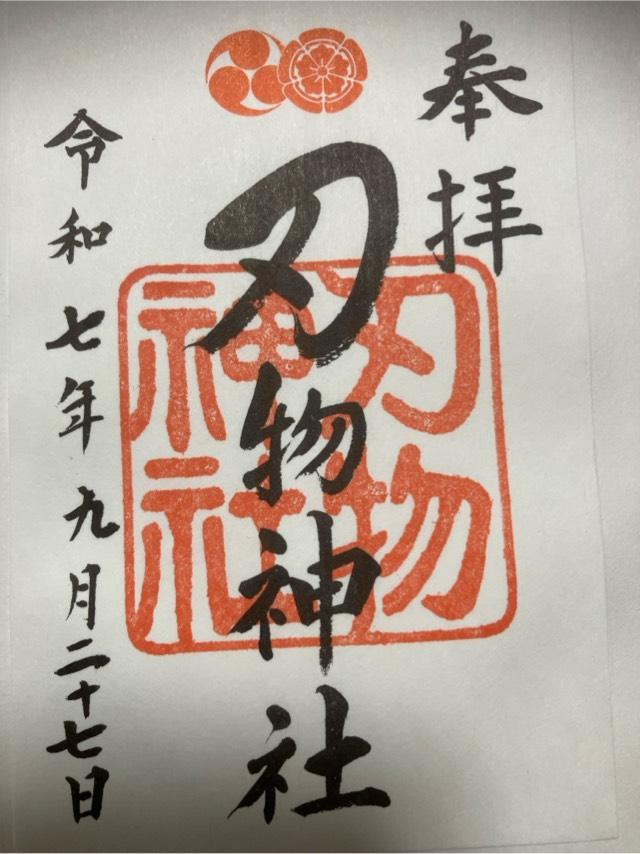 奉拝
刃物神社
刃物
神社
令和七年九月二十七日